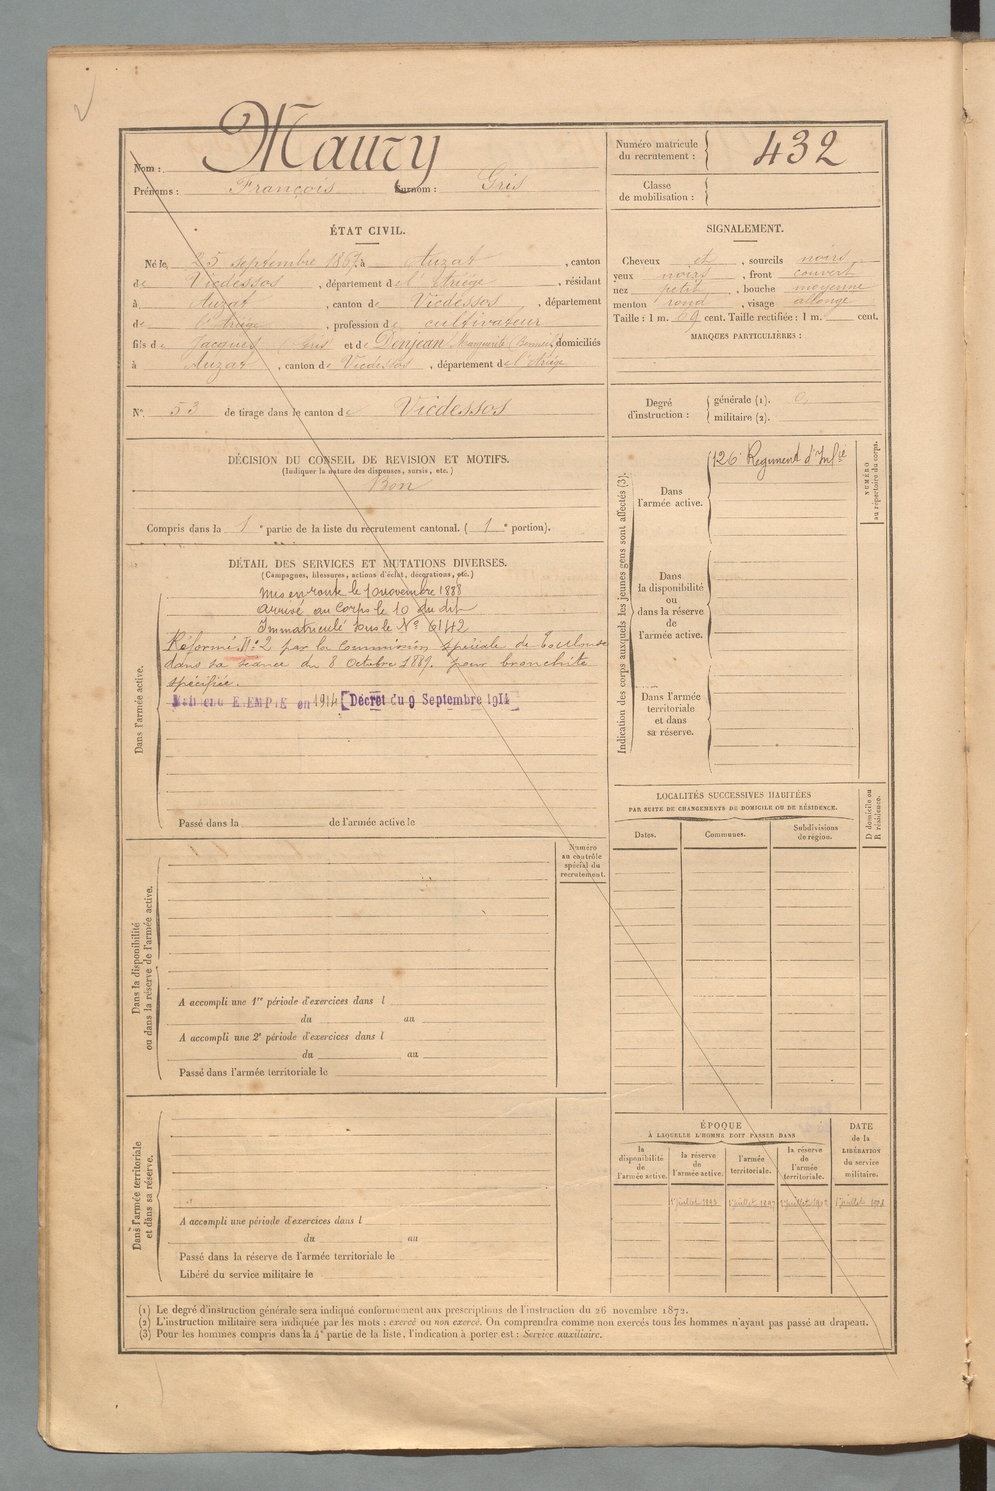 Nom : Maury
Prénoms : François Surnom : Gris
Numéro matricule du recrutement : 432
Classe de mobilisation :
ÉTAT CIVIL.
Né le, 25 septembre 1867, à Auzat, canton
de Vicdessos, département de l'Ariége, résidant
à Auzat, canton de Vicdessos, département
de l'Ariége, profession de cultivateur
fils de Jacques (Gris et de Donjean Marguerite domiciliés
à Auzat, canton de Vicdessos, département de l'Ariége
N° 53 de tirage dans le canton de Vicdessos
SIGNALEMENT.
Cheveux et, sourcils noirs
yeux noirs, front couvert
nez petit, bouche moyenne
menton rond, visage allongé
Taille : 1 m. 69 cent. Taille rectifiée : 1 m. cent.
MARQUES PARTICULIÈRES :
Degré d'instruction : générale (1).
militaire (2).
DÉCISION DU CONSEIL DE REVISION ET MOTIFS.
(Indiquer la nature des dispenses, sursis, etc.)
Bon
Compris dans la 1e partie de la liste du recrutement cantonal. ( 1e portion).
DÉTAIL DES SERVICES ET MUTATIONS DIVERSES.
(Campagnes, blessures, actions d'éclat, décorations, etc.)
Dans l'armée active.
Mis en route le 10 novembre 1888
arrivé au Corps le 10 du dit
Immatriculé sous le N° 6142
Réformé N° 2 par la Commission spéciale de Toulouse
dans sa séance du 8 Octobre 1889. pour bronchite
spécifiée.
Maintenu EXEMPTE en 1914 [Décret du 9 Septembre 1914]
Passé dans la de l'armée active le
Indication des corps auxquels les jeunes gens sont affectés (3).
Dans l'armée active.
126e Regiment d'Infie
Dans la disponibilité ou dans la réserve de l'armée active.
Dans l'armée territoriale et dans sa réserve.
NUMÉRO au répertoire du corps.
LOCALITÉS SUCCESSIVES HABITÉES
PAR SUITE DE CHANGEMENTS DE DOMICILE OU DE RÉSIDENCE.
Dates. Communes. Subdivisions de région.
D domicile ou R résidence.
Dans la disponibilité ou dans la réserve de l'armée active.
Numéro au contrôle spécial du recrutement.
A accompli une 1re période d'exercices dans l
du au
A accompli une 2e période d'exercices dans l
du au
Passé dans l'armée territoriale le
Dans l'armée territoriale et dans sa réserve.
A accompli une période d'exercices dans l
du au
Passé dans la réserve de l'armée territoriale le
Libéré du service militaire le
ÉPOQUE
À LAQUELLE L'HOMME DOIT PASSER DANS
la disponibilité de l'armée active.
la réserve de l'armée active.
l'armée territoriale.
la réserve de l'armée territoriale.
DATE de la LIBÉRATION du service militaire.
(1) Le degré d'instruction générale sera indiqué conformément aux prescriptions de l'instruction du 26 novembre 1872.
(2) L'instruction militaire sera indiquée par les mots : exercé ou non exercé. On comprendra comme non exercés tous les hommes n'ayant pas passé au drapeau.
(3) Pour les hommes compris dans la 4e partie de la liste, l'indication à porter est : Service auxiliaire.